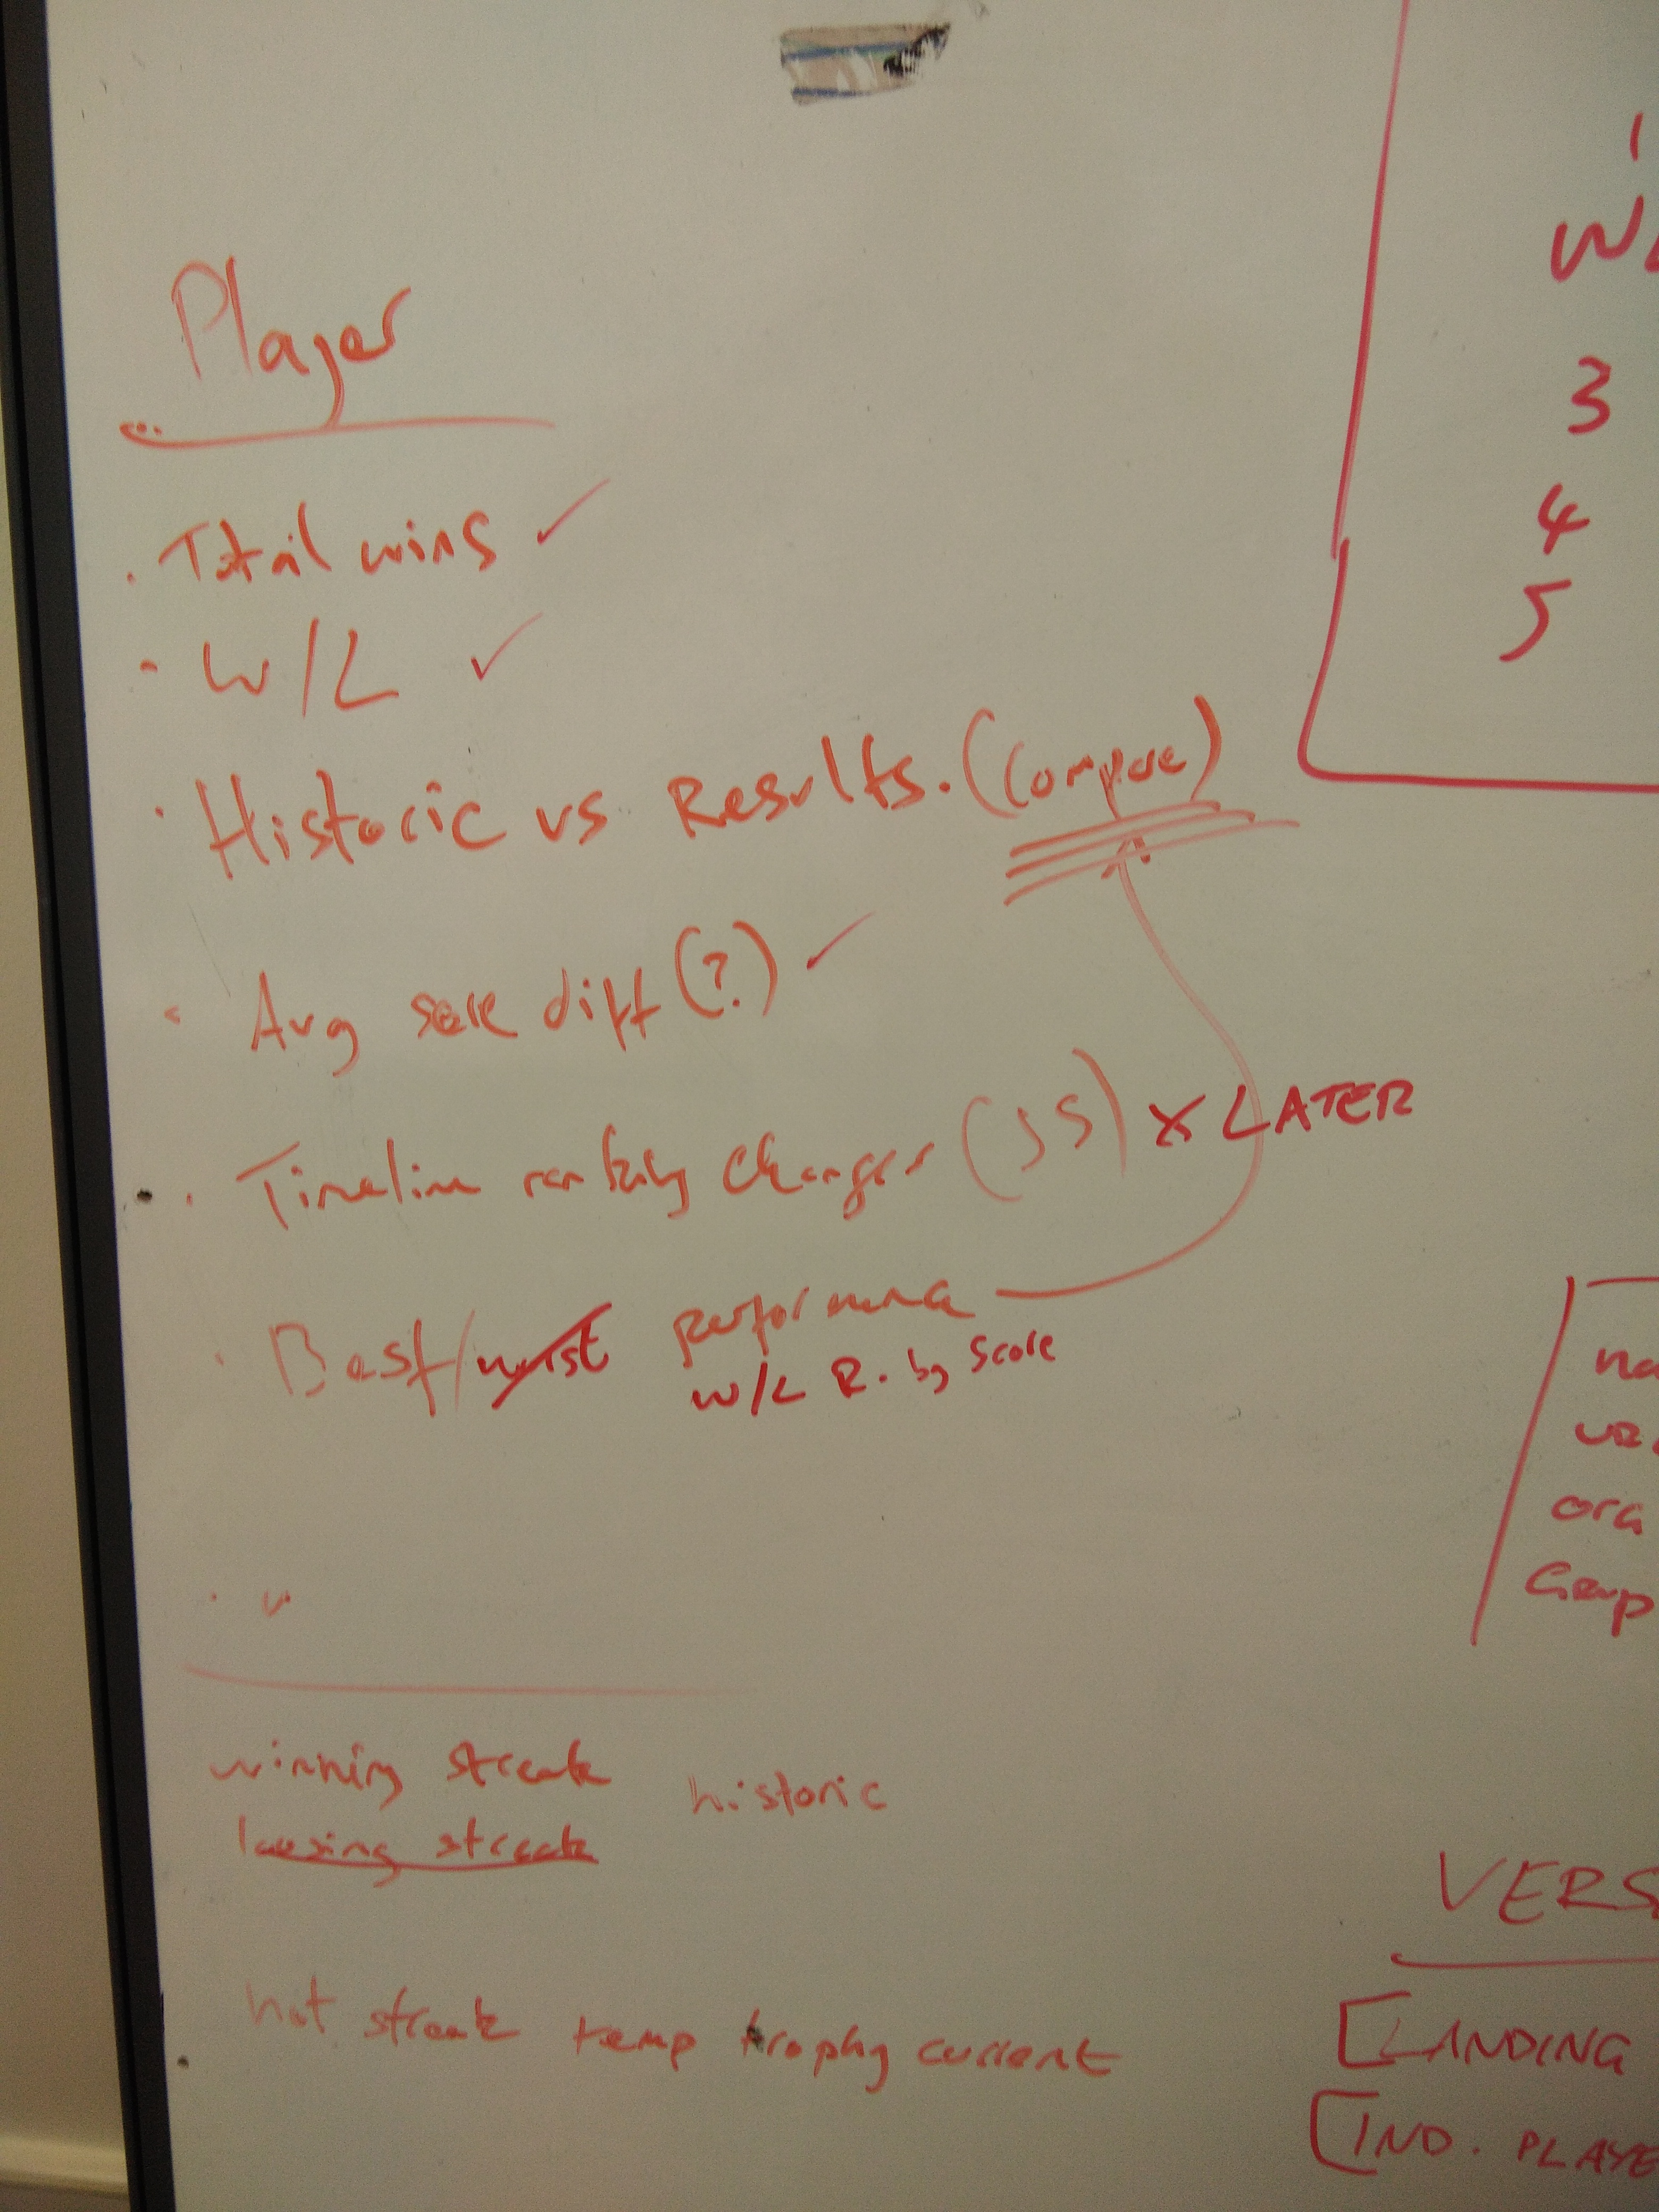 Player
· Total wins ✓
· W/L ✓
· Historic vs Results. (Compare)
· Avg score diff (?) ✓
· Timeline ranking changes (JS) x LATER
· Best/worst performance
w/L R. by Score
winning streak historic
loosing streak
hot streak temp trophy current
1
W
3
4
5
na
org
Group
VERS
[LANDING
[IND. PLAYE